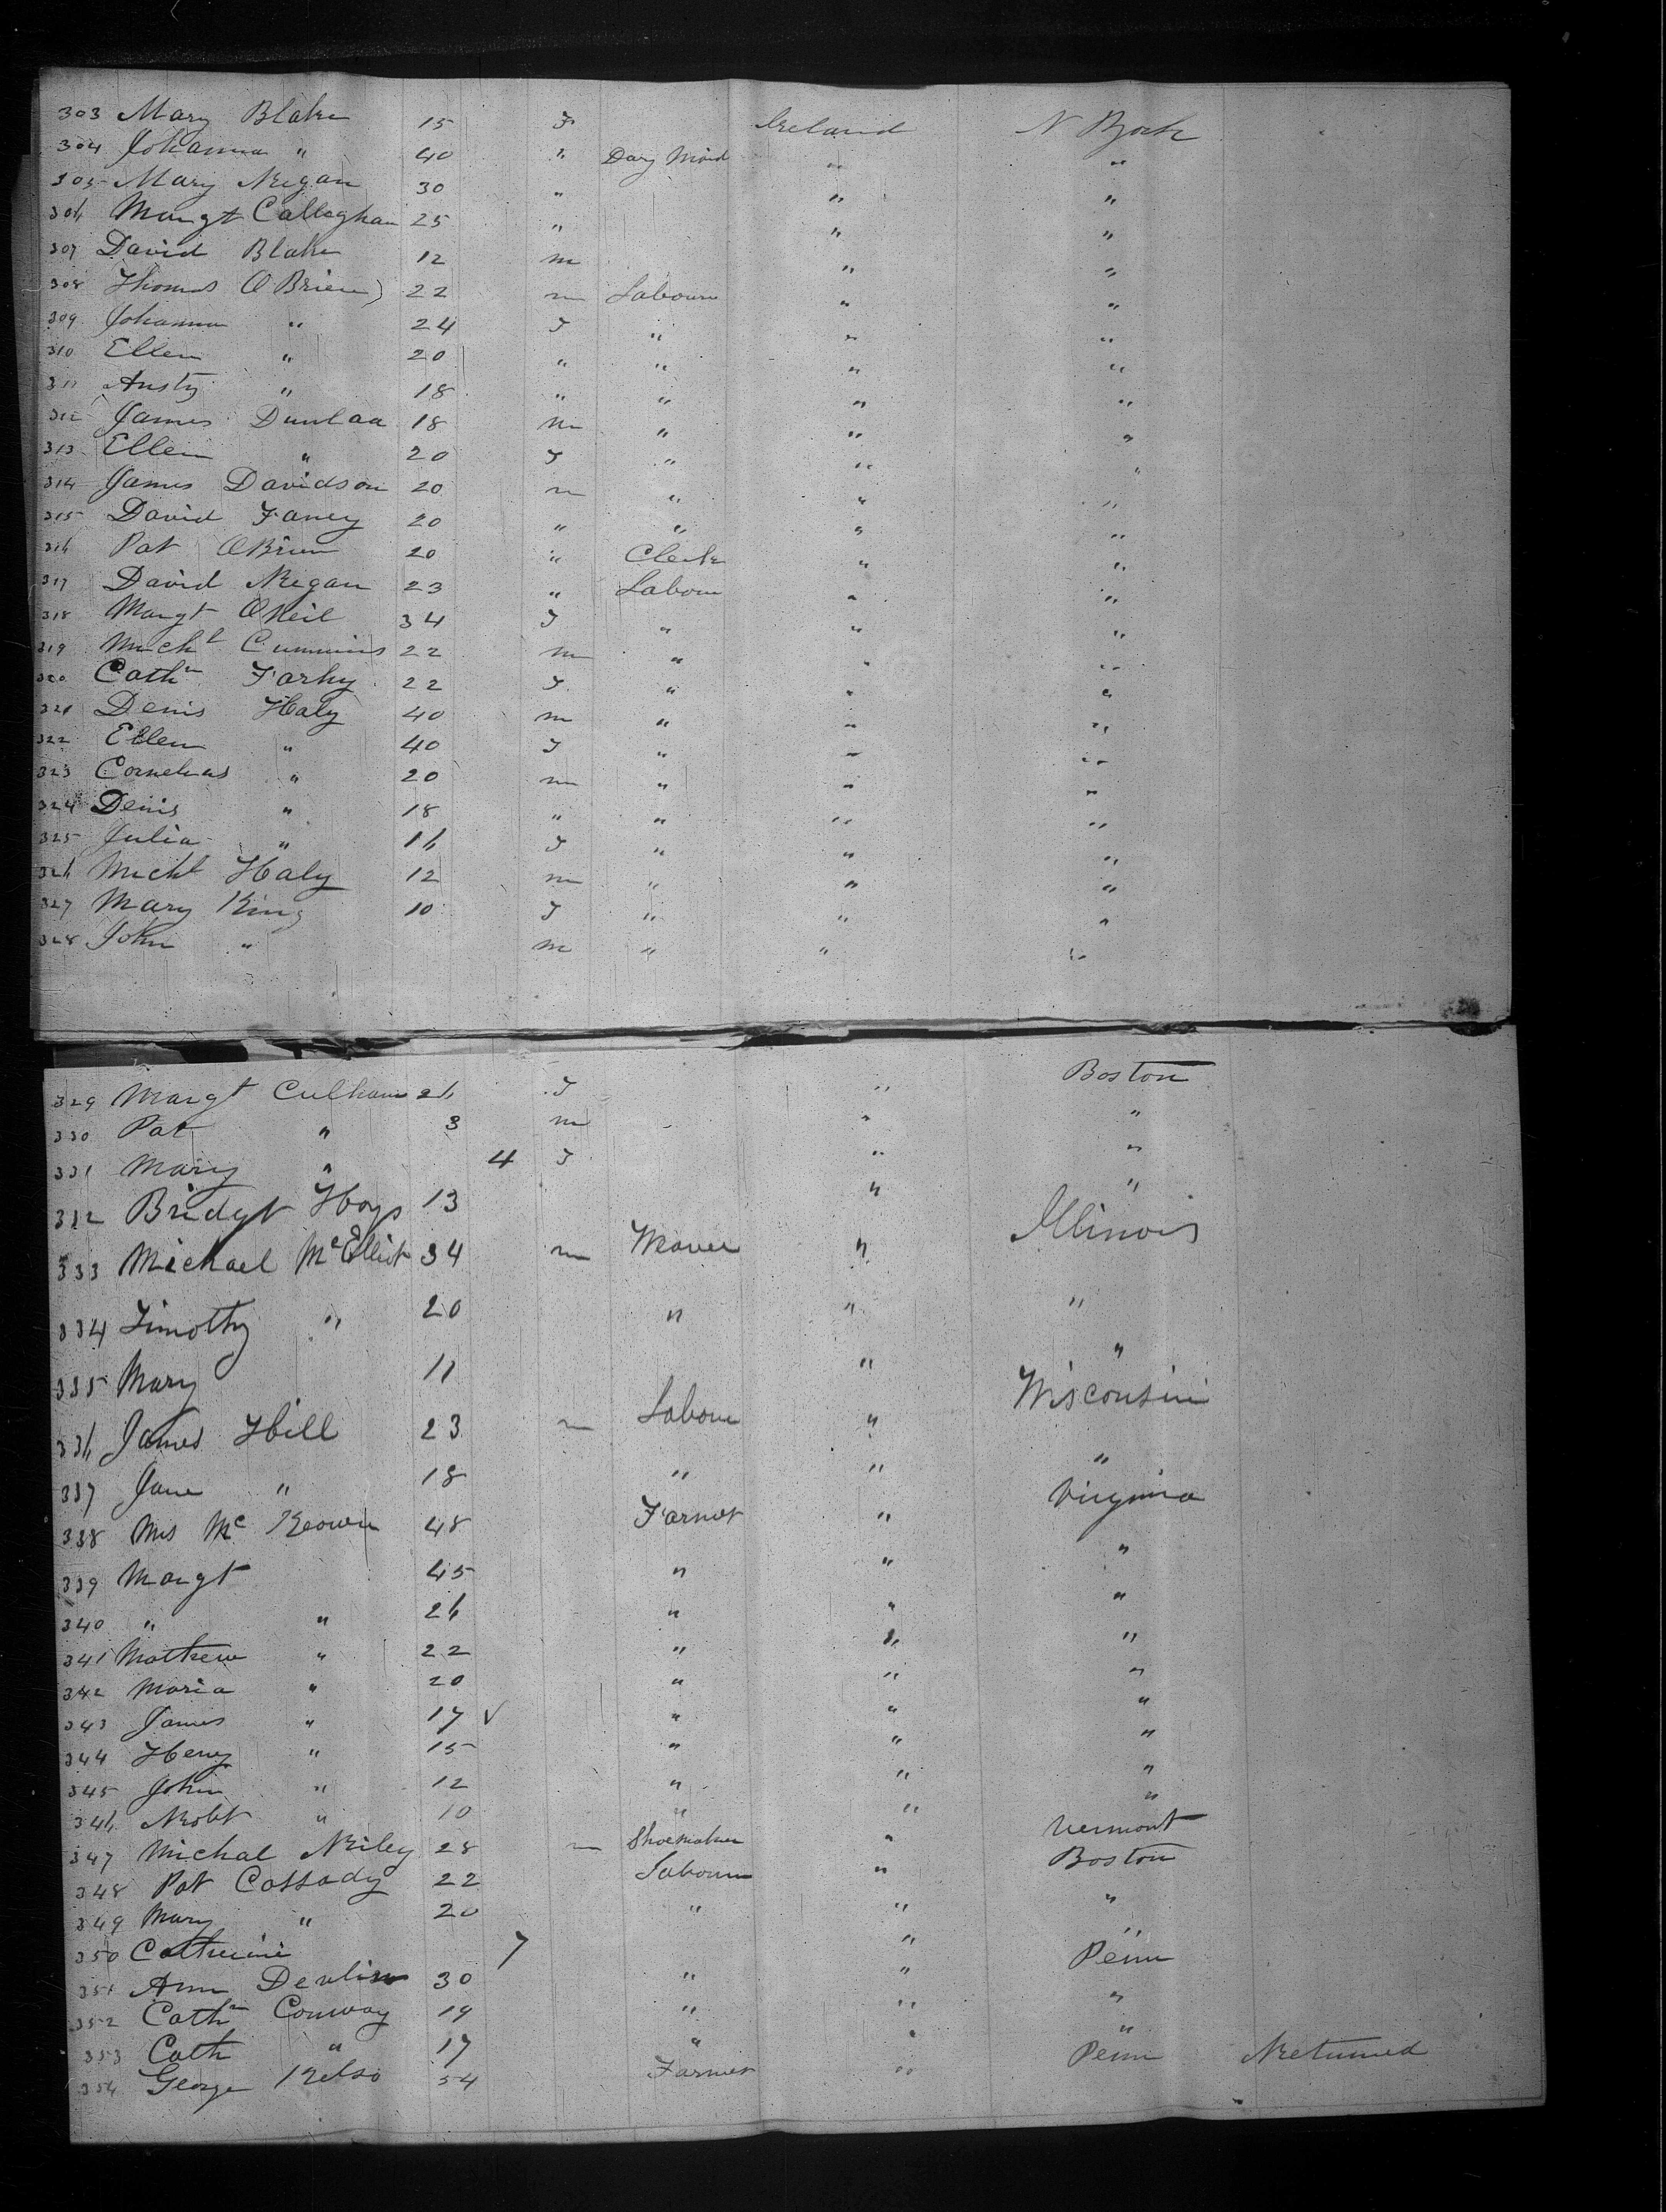 303 Mary Blake 15 F Ireland N York
304 Johanna " 40 " Dary Maid " "
305 Mary Regan 30 " " "
306 Margt Callaghan 25 " " "
307 David Blake 12 m " "
308 Thomas O Brien 22 m Labourer " "
309 Johanna " 24 F " " "
310 Ellen " 20 " " " "
311 Ansty " 18 " " " "
312 James Dunlaa 18 m " " "
313 Ellen " 20 F " " "
314 James Davidson 20 m " " "
315 David Faney 20 " " " "
316 Pat OBrien 20 " Clerk " "
317 David Regan 23 " Labour " "
318 Margt ONeil 34 F " " "
319 Michl Cummins 22 m " " "
320 Cathn Farhy 22 F " " "
321 Denis Haly 40 m " " "
322 Ellen " 40 F " " "
323 Cornelius " 20 m " " "
324 Denis " 18 " " " "
325 Julia " 16 F " " "
326 Michl Haly 12 m " " "
327 Mary King 10 F " " "
328 John " m " " "
329 Margt Culhane 26 F " Boston
330 Pat " 3 m " "
331 Mary " 4 F " "
332 Bridgt Hoys 13 " "
333 Michael McElliot 34 m Weaver " Illinois
334 Timothy " 20 " " "
335 Mary 11 " "
336 James Hill 23 m Labour " Wisconsin
337 Jane " 18 " " "
338 Mrs Mc Keown 48 Farmer " Virginia
339 Margt 45 " " "
340 " " 26 " " "
341 Mathew " 22 " " "
342 Maria " 20 " " "
343 James " 17 √ " " "
344 Henry " 15 " " "
345 John " 12 " " "
346 Robt " 10 " " "
347 Michal Riley 28 m Shoemaker " Vermont
348 Pat Cassady 22 Labourer " Boston
349 Mary " 20 " " "
350 Catherine 7 " "
351 Ann Devlin 30 " " Penn
352 Cathn Conway 19 " " "
353 Cath " 17 " " "
354 George Kelso 54 Farmer " Penn Returned